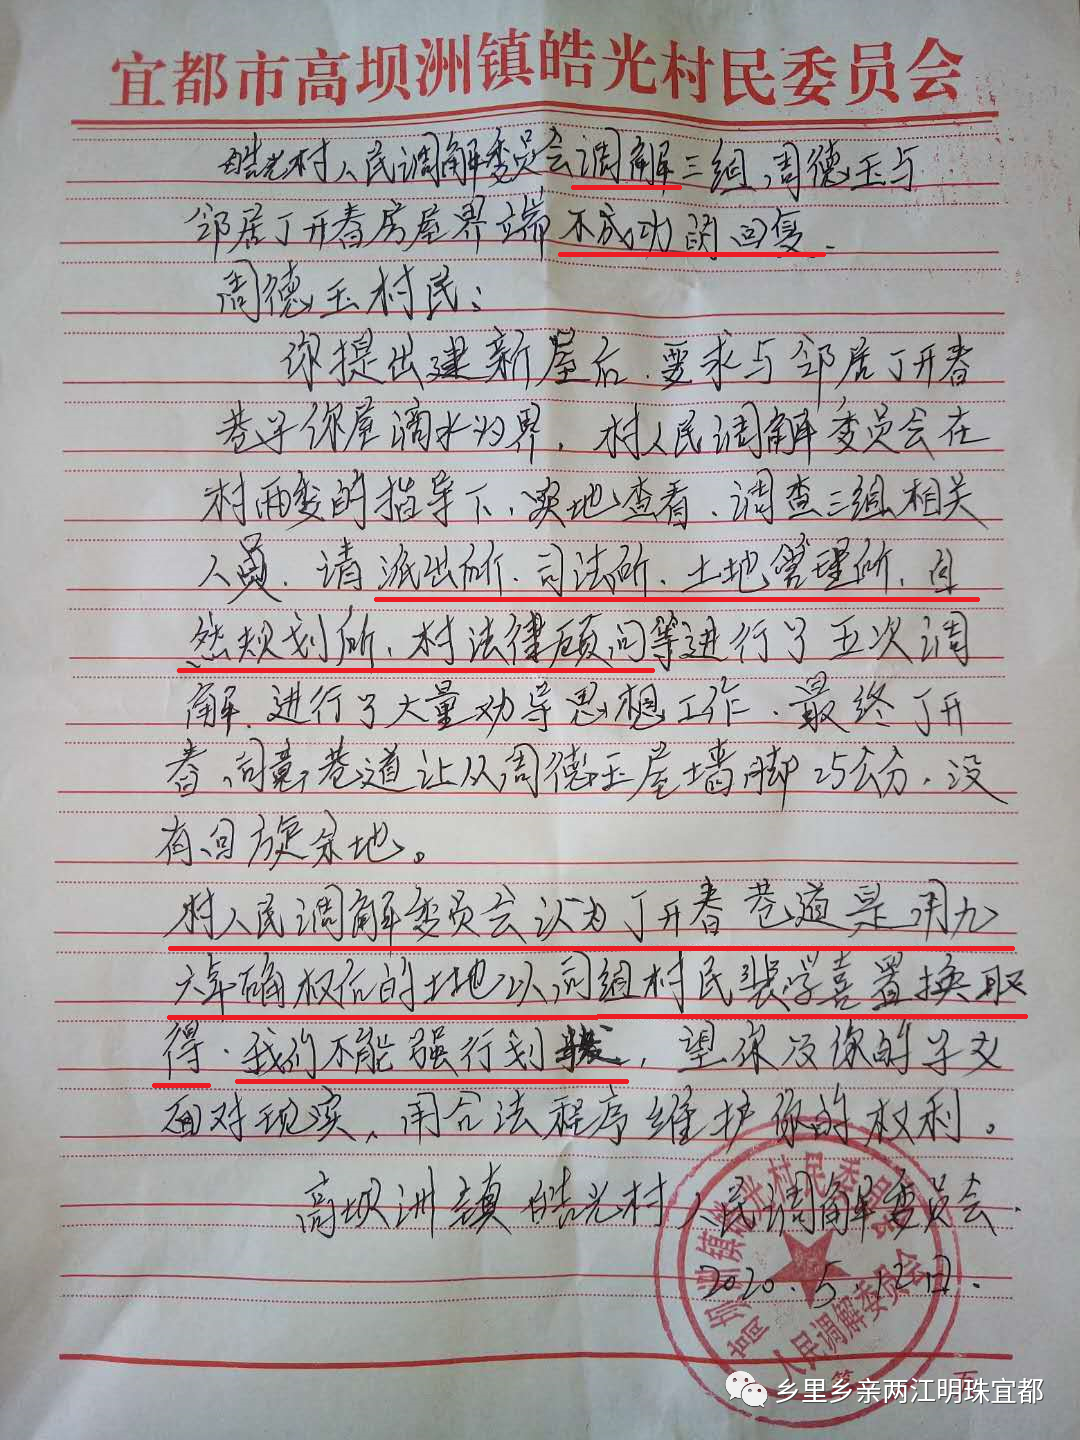 宜都市高坝洲镇皓光村民委员会
皓光村人民调解委员会调解三组周德玉与
邻居丁开春房屋界端不成功的回复.
周德玉村民：
你提出建新屋后.要求与邻居丁开春
巷子你屋滴水为界，村人民调解委员会在
村两委的指导下、实地查看、调查三组相关
人员.请派出所.司法所.土地管理所,自
然规划所.村法律顾问等进行了五次调
解.进行了大量劝导思想工作.最终丁开
春同意巷道让从周德玉屋墙脚25公分.没
有回旋余地。
村人民调解委员会认为丁开春巷道是用九
六年确权后的土地以同组村民裴学喜置换取
得.我们不能强行划拨，望你及你的子女
面对现实、用合法程序维护你的权利。
高坝洲镇皓光村人民调解委员会.
2020.5.12日.
高坝洲镇皓光村民委员会
人民调解委员会
第 页
乡里乡亲两江明珠宜都